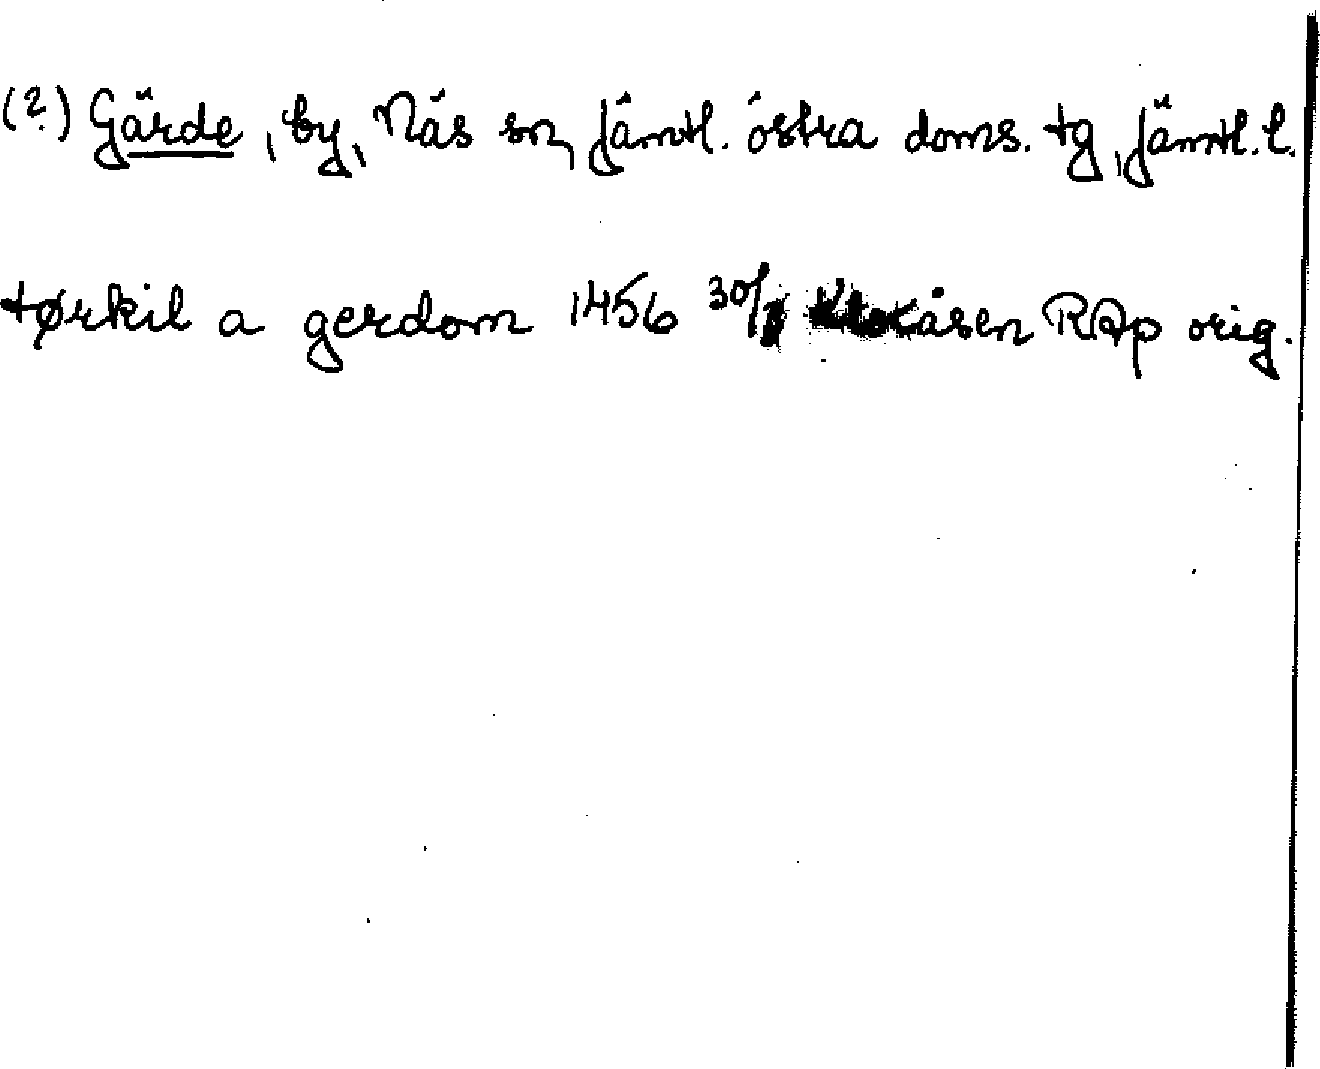 (?) Gärde, by, Näs sn, Jämtl. östra doms. tg, Jämtl. l.
tørkil a gerdom 1456 30/ Klokåsen RAp orig.